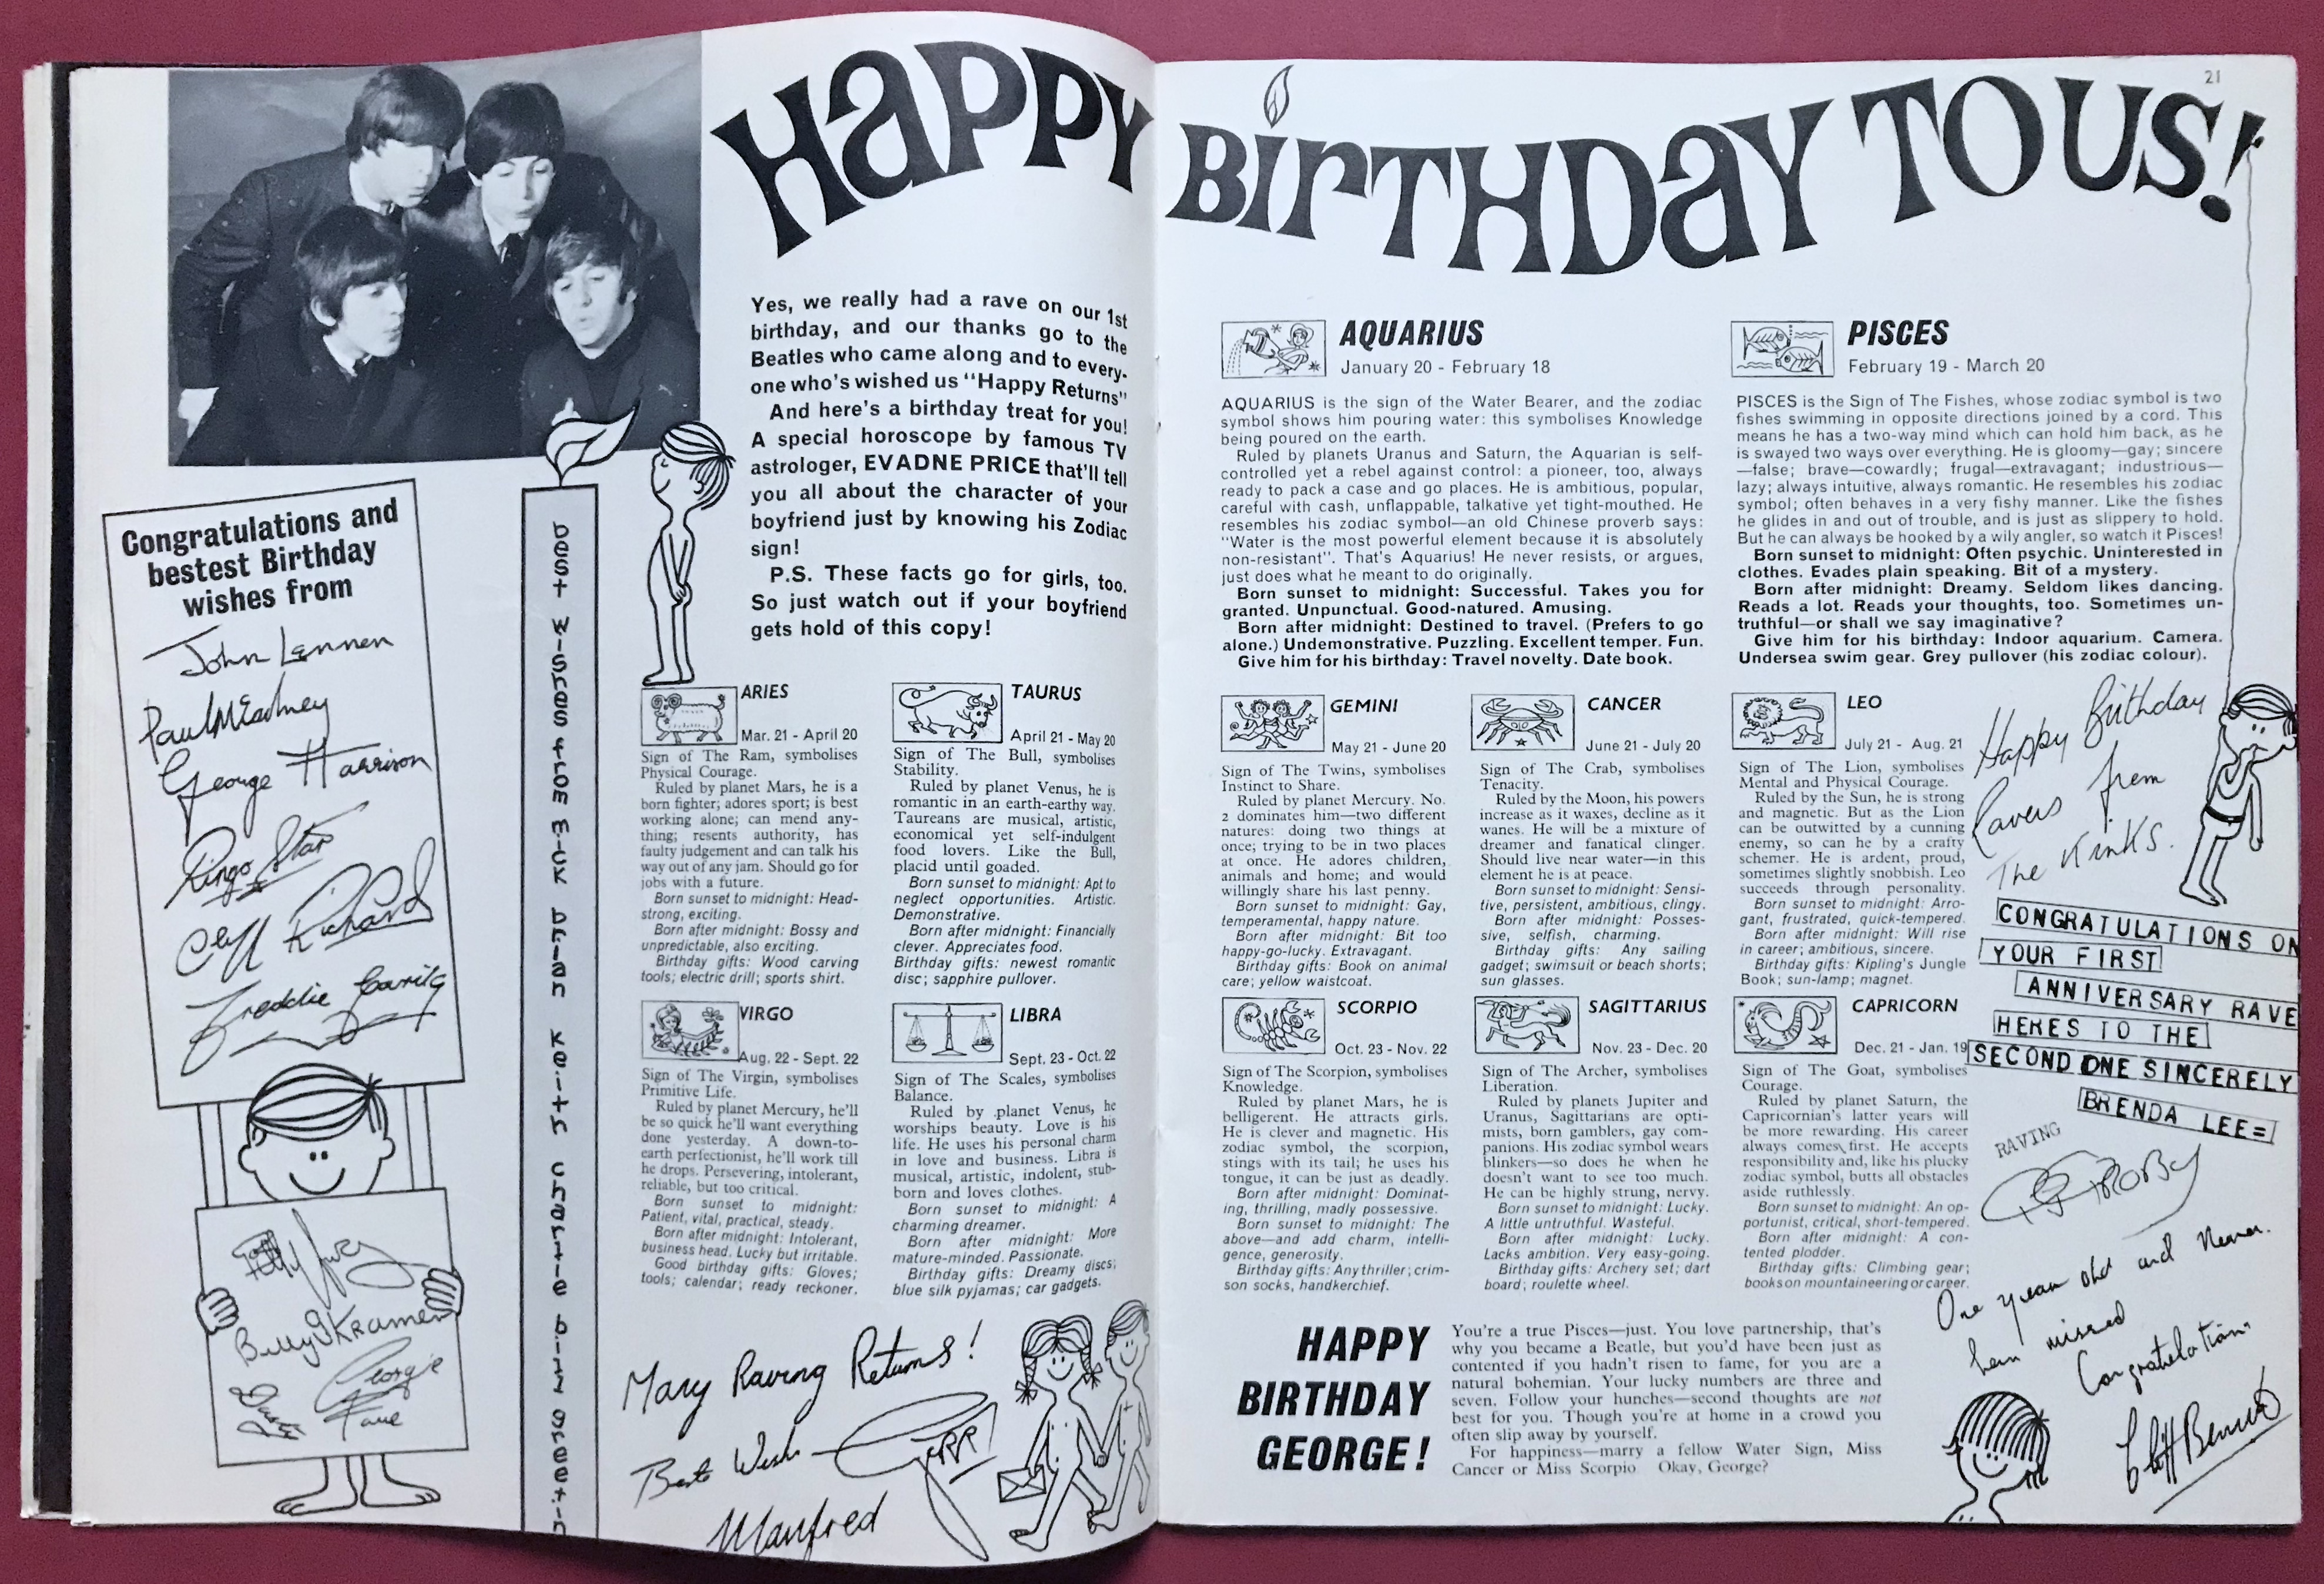 HAPPY BIRTHDAY TO US!
21
Yes, we really had a rave on our 1st
birthday, and our thanks go to the
Beatles who came along and to every-
one who's wished us "Happy Returns"
And here's a birthday treat for you!
A special horoscope by famous TV
astrologer, EVADNE PRICE that'll tell
you all about the character of your
boyfriend just by knowing his Zodiac
sign!
P.S. These facts go for girls, too.
So just watch out if your boyfriend
gets hold of this copy!
Congratulations and
bestest Birthday
wishes from
John Lennon
Paul McCartney
George Harrison
Ringo Star
Cliff Richard
Freddie Garrity
Billy J Kramer
Georgie
Fame
best wishes from mick brian keith charlie bill greetin
ARIES
Mar. 21 - April 20
Sign of The Ram, symbolises
Physical Courage.
Ruled by planet Mars, he is a
born fighter; adores sport; is best
working alone; can mend any-
thing; resents authority, has
faulty judgement and can talk his
way out of any jam. Should go for
jobs with a future.
Born sunset to midnight: Head-
strong, exciting.
Born after midnight: Bossy and
unpredictable, also exciting.
Birthday gifts: Wood carving
tools; electric drill; sports shirt.
TAURUS
April 21 - May 20
Sign of The Bull, symbolises
Stability.
Ruled by planet Venus, he is
romantic in an earth-earthy way.
Taureans are musical, artistic,
economical yet self-indulgent
food lovers. Like the Bull,
placid until goaded.
Born sunset to midnight: Apt to
neglect opportunities. Artistic.
Demonstrative.
Born after midnight: Financially
clever. Appreciates food.
Birthday gifts: newest romantic
disc; sapphire pullover.
VIRGO
Aug. 22 - Sept. 22
Sign of The Virgin, symbolises
Primitive Life.
Ruled by planet Mercury, he'll
be so quick he'll want everything
done yesterday. A down-to-
earth perfectionist, he'll work till
he drops. Persevering, intolerant,
reliable, but too critical.
Born sunset to midnight:
Patient, vital, practical, steady.
Born after midnight: Intolerant,
business head. Lucky but irritable.
Good birthday gifts: Gloves;
tools; calendar; ready reckoner.
LIBRA
Sept. 23 - Oct. 22
Sign of The Scales, symbolises
Balance.
Ruled by planet Venus, he
worships beauty. Love is his
life. He uses his personal charm
in love and business. Libra is
musical, artistic, indolent, stub-
born and loves clothes.
Born sunset to midnight: A
charming dreamer.
Born after midnight: More
mature-minded. Passionate.
Birthday gifts: Dreamy discs;
blue silk pyjamas; car gadgets.
Many Raving Returns!
Best Wishes
Manfred
AQUARIUS
January 20 - February 18
AQUARIUS is the sign of the Water Bearer, and the zodiac
symbol shows him pouring water: this symbolises Knowledge
being poured on the earth.
Ruled by planets Uranus and Saturn, the Aquarian is self-
controlled yet a rebel against control: a pioneer, too, always
ready to pack a case and go places. He is ambitious, popular,
careful with cash, unflappable, talkative yet tight-mouthed. He
resembles his zodiac symbol—an old Chinese proverb says:
"Water is the most powerful element because it is absolutely
non-resistant". That's Aquarius! He never resists, or argues,
just does what he meant to do originally.
Born sunset to midnight: Successful. Takes you for
granted. Unpunctual. Good-natured. Amusing.
Born after midnight: Destined to travel. (Prefers to go
alone.) Undemonstrative. Puzzling. Excellent temper. Fun.
Give him for his birthday: Travel novelty. Date book.
PISCES
February 19 - March 20
PISCES is the Sign of The Fishes, whose zodiac symbol is two
fishes swimming in opposite directions joined by a cord. This
means he has a two-way mind which can hold him back, as he
is swayed two ways over everything. He is gloomy—gay; sincere
—false; brave—cowardly; frugal—extravagant; industrious—
lazy; always intuitive, always romantic. He resembles his zodiac
symbol; often behaves in a very fishy manner. Like the fishes
he glides in and out of trouble, and is just as slippery to hold.
But he can always be hooked by a wily angler, so watch it Pisces!
Born sunset to midnight: Often psychic. Uninterested in
clothes. Evades plain speaking. Bit of a mystery.
Born after midnight: Dreamy. Seldom likes dancing.
Reads a lot. Reads your thoughts, too. Sometimes un-
truthful—or shall we say imaginative?
Give him for his birthday: Indoor aquarium. Camera.
Undersea swim gear. Grey pullover (his zodiac colour).
GEMINI
May 21 - June 20
Sign of The Twins, symbolises
Instinct to Share.
Ruled by planet Mercury. No.
2 dominates him—two different
natures: doing two things at
once; trying to be in two places
at once. He adores children,
animals and home; and would
willingly share his last penny.
Born sunset to midnight: Gay,
temperamental, happy nature.
Born after midnight: Bit too
happy-go-lucky. Extravagant.
Birthday gifts: Book on animal
care; yellow waistcoat.
CANCER
June 21 - July 20
Sign of The Crab, symbolises
Tenacity.
Ruled by the Moon, his powers
increase as it waxes, decline as it
wanes. He will be a mixture of
dreamer and fanatical clinger.
Should live near water—in this
element he is at peace.
Born sunset to midnight: Sensi-
tive, persistent, ambitious, clingy.
Born after midnight: Posses-
sive, selfish, charming.
Birthday gifts: Any sailing
gadget; swimsuit or beach shorts;
sun glasses.
LEO
July 21 - Aug. 21
Sign of The Lion, symbolises
Mental and Physical Courage.
Ruled by the Sun, he is strong
and magnetic. But as the Lion
can be outwitted by a cunning
enemy, so can he by a crafty
schemer. He is ardent, proud,
sometimes slightly snobbish. Leo
succeeds through personality.
Born sunset to midnight: Arro-
gant, frustrated, quick-tempered.
Born after midnight: Will rise
in career; ambitious, sincere.
Birthday gifts: Kipling's Jungle
Book; sun-lamp; magnet.
SCORPIO
Oct. 23 - Nov. 22
Sign of The Scorpion, symbolises
Knowledge.
Ruled by planet Mars, he is
belligerent. He attracts girls.
He is clever and magnetic. His
zodiac symbol, the scorpion,
stings with its tail; he uses his
tongue, it can be just as deadly.
Born after midnight: Dominat-
ing, thrilling, madly possessive.
Born sunset to midnight: The
above—and add charm, intelli-
gence, generosity.
Birthday gifts: Any thriller; crim-
son socks, handkerchief.
SAGITTARIUS
Nov. 23 - Dec. 20
Sign of The Archer, symbolises
Liberation.
Ruled by planets Jupiter and
Uranus, Sagittarians are opti-
mists, born gamblers, gay com-
panions. His zodiac symbol wears
blinkers—so does he when he
doesn't want to see too much.
He can be highly strung, nervy.
Born sunset to midnight: Lucky.
A little untruthful. Wasteful.
Born after midnight: Lucky.
Lacks ambition. Very easy-going.
Birthday gifts: Archery set; dart
board; roulette wheel.
CAPRICORN
Dec. 21 - Jan. 19
Sign of The Goat, symbolises
Courage.
Ruled by planet Saturn, the
Capricornian's latter years will
be more rewarding. His career
always comes first. He accepts
responsibility and, like his plucky
zodiac symbol, butts all obstacles
aside ruthlessly.
Born sunset to midnight: An op-
portunist, critical, short-tempered.
Born after midnight: A con-
tented plodder.
Birthday gifts: Climbing gear;
books on mountaineering or career.
Happy Birthday
Ravers from
The Kinks.
CONGRATULATIONS ON
YOUR FIRST
ANNIVERSARY RAVE
HERES TO THE
SECOND ONE SINCERELY
BRENDA LEE=
RAVING
PJ PROBY
One year old and never
been missed
Congratulations
Cliff Bennett
HAPPY
BIRTHDAY
GEORGE!
You're a true Pisces—just. You love partnership, that's
why you became a Beatle, but you'd have been just as
contented if you hadn't risen to fame, for you are a
natural bohemian. Your lucky numbers are three and
seven. Follow your hunches—second thoughts are not
best for you. Though you're at home in a crowd you
often slip away by yourself.
For happiness—marry a fellow Water Sign, Miss
Cancer or Miss Scorpio Okay, George?